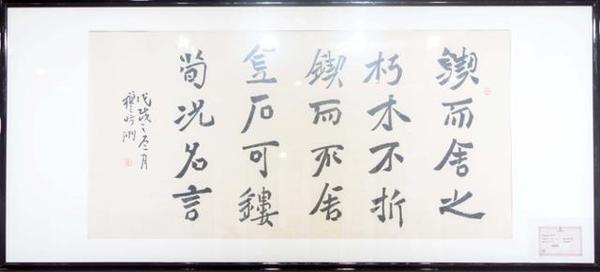 鍥而舍之
朽木不折
鍥而不舍
金石可鏤
荀况名言
戊戌